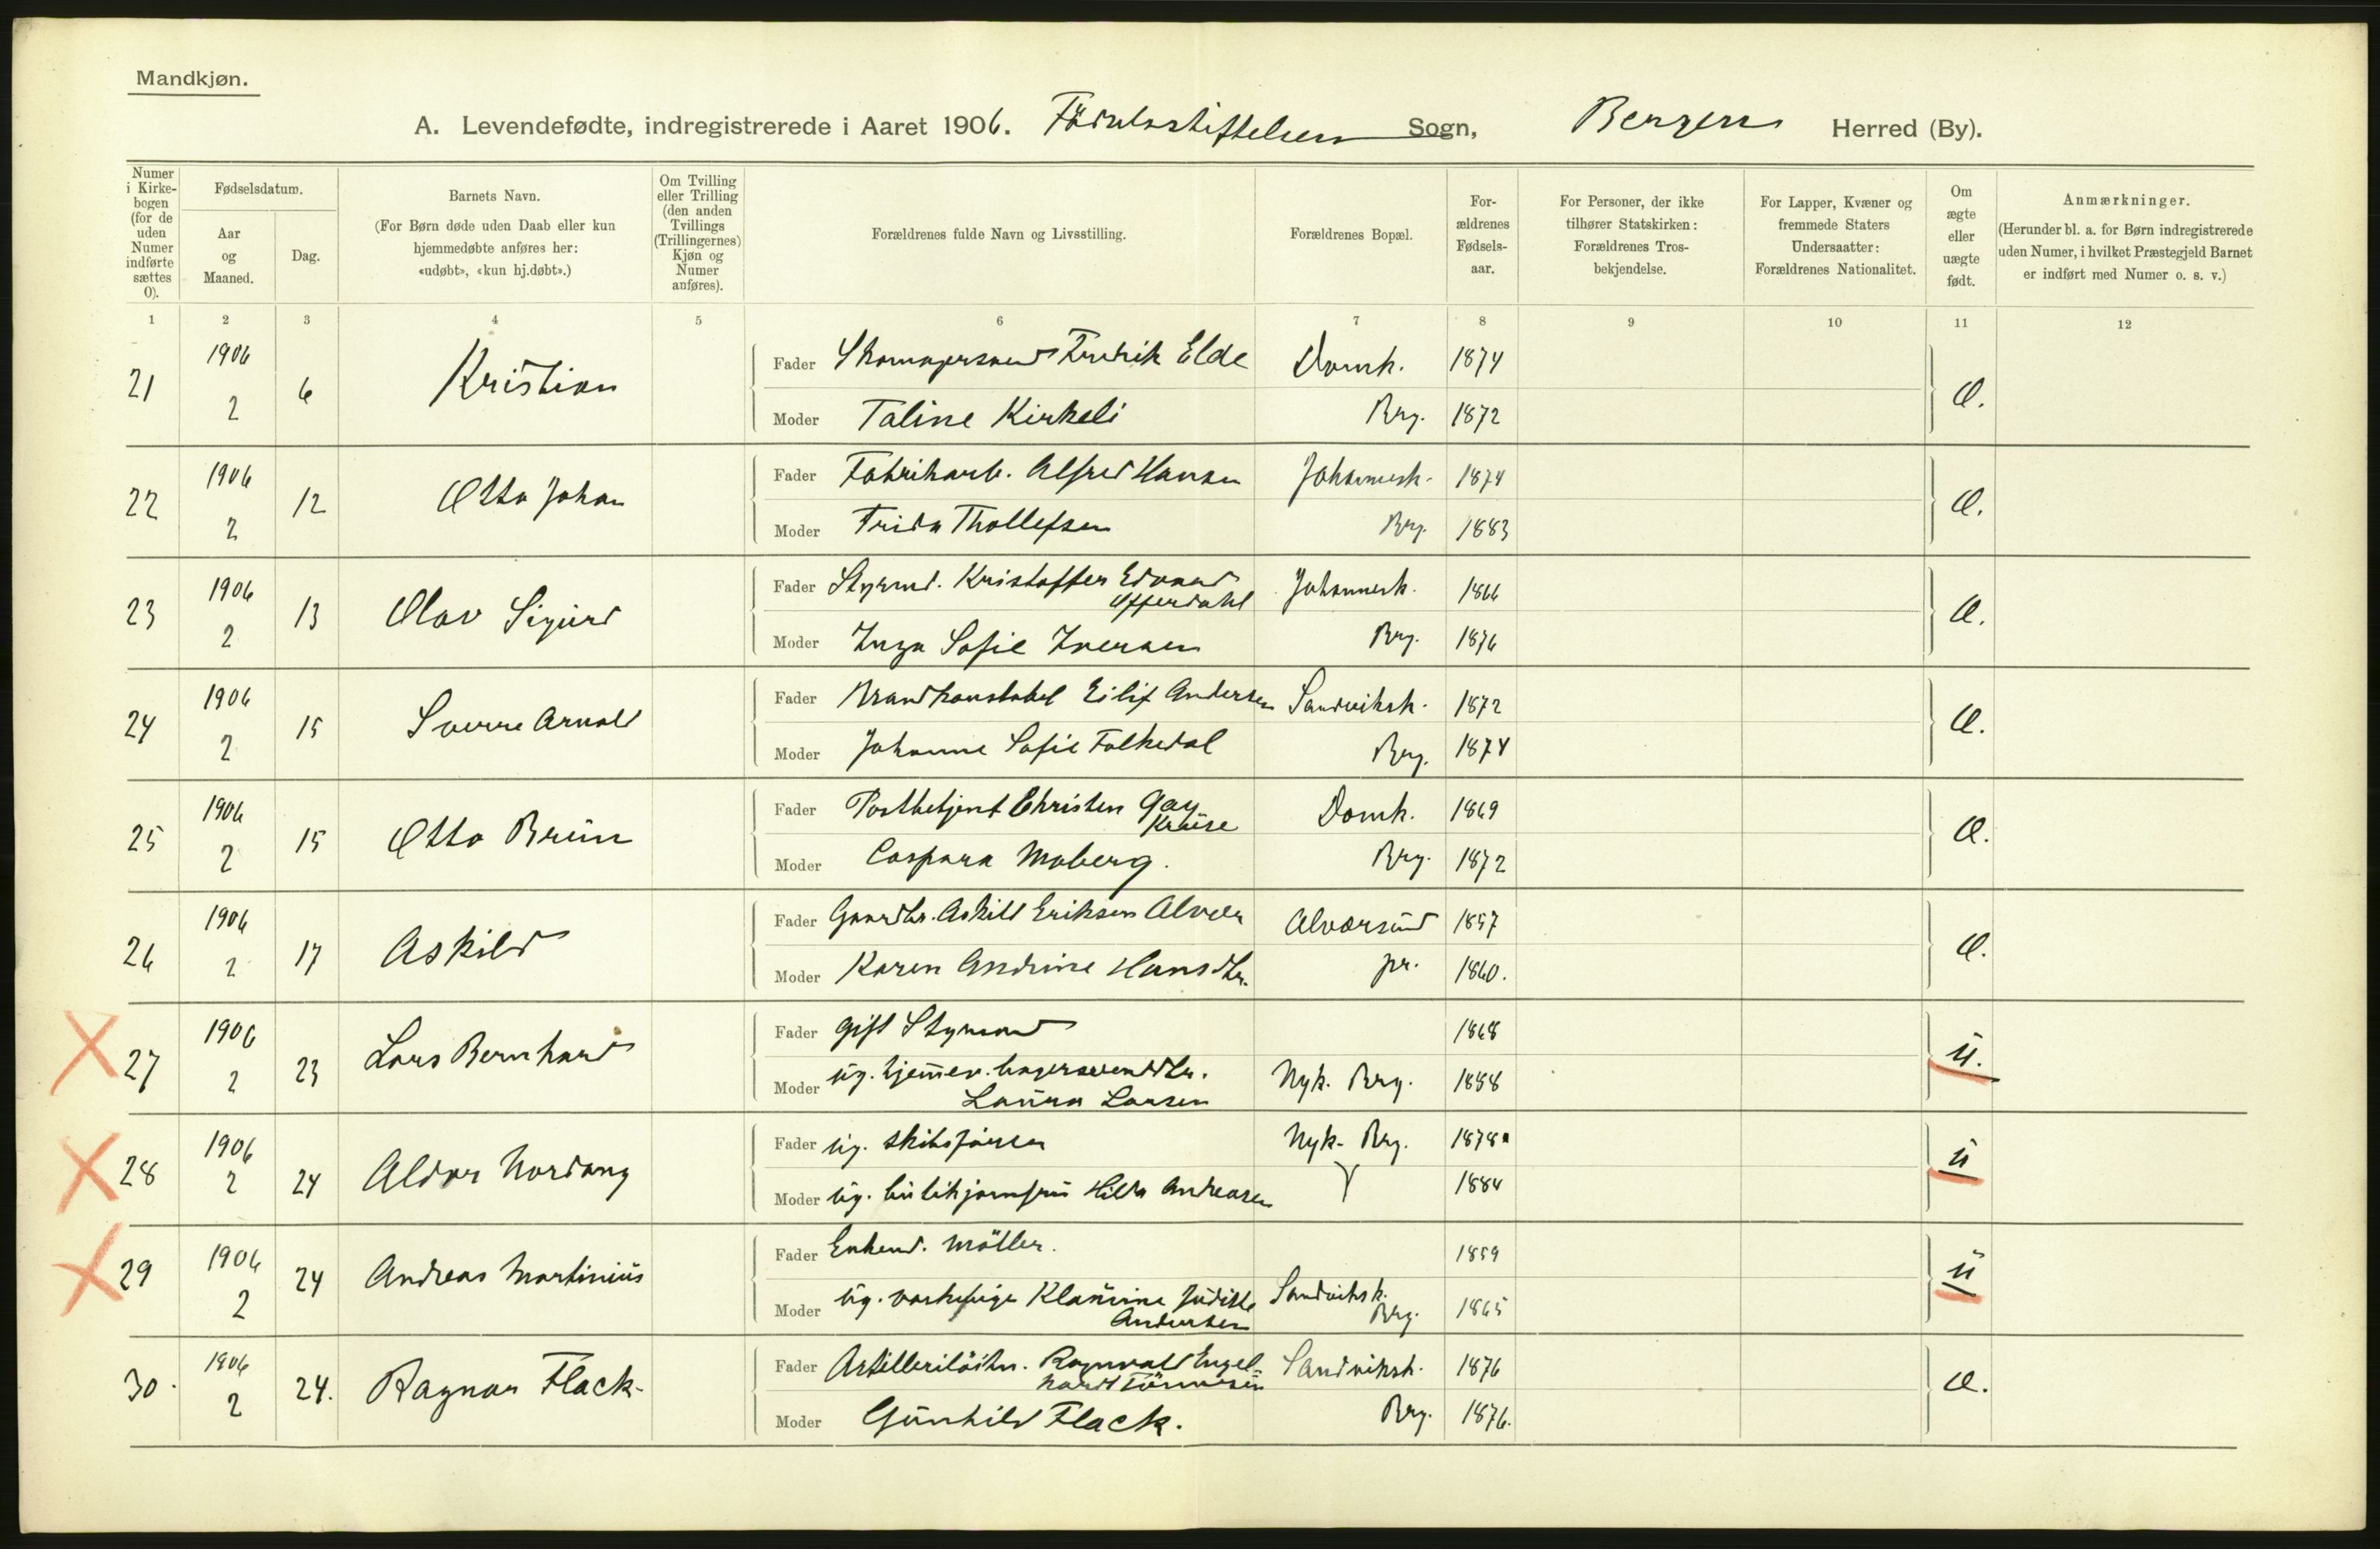 Mandkjøn.
A. Levendefødte, indregistrerede i Aaret 1906. Födselsstiftelsen Sogn, Bergen Herred (By).
Numer i Kirkebogen (for de uden Numer indførte sættes 0).
Fødselsdatum.
Aar og Maaned.
Dag.
Barnets Navn.
(For Børn døde uden Daab eller kun hjemmedøbte anføres her: «udøbt», «kun hj.døbt».)
Om Tvilling eller Trilling (den anden Tvillings (Trillingernes) Kjøn og Numer anføres).
Forældrenes fulde Navn og Livsstilling.
Forældrenes Bopæl.
Forældrenes Fødselsaar.
For Personer, der ikke tilhører Statskirken: Forældrenes Trosbekjendelse.
For Lapper, Kvæner og fremmede Staters Undersaatter: Forældrenes Nationalitet.
Om ægte eller uægte født.
Anmærkninger.
(Herunder bl. a. for Børn indregistrerede uden Numer, i hvilket Præstegjeld Barnet er indført med Numer o. s. v.)
1 2 3 4 5 6 7 8 9 10 11 12
21 1906 2 6 Kristian
Fader Skomagersvend Fredrik Elde Domk. 1874
Moder Taline Kirkeli Brg. 1872
Æ.
22 1906 2 12 Otto Johan
Fader Fabrikarb. Alfred Hansen Johannesk. 1874
Moder Frida Thollefsen Brg. 1883
Æ.
23 1906 2 13 Olav Sigurd
Fader Styrmd. Kristoffer Edvard Offerdahl Johannesk. 1866
Moder Inga Sofie Iversen Brg. 1876
Æ.
24 1906 2 15 Sverre Arnold
Fader Brandkonstabel Eilif Andersen Sandviksk. 1872
Moder Johanne Sofie Folkedal Brg. 1874
Æ.
25 1906 2 15 Otto Brun
Fader Postbetjent Christen Gay Krüse Domk. 1869
Moder Caspara Moberg. Brg. 1872
Æ.
26 1906 2 17 Askild
Fader Gaardbr. Askild Eriksen Alver Alversund 1857
Moder Karen Andrine Hansdtr. pr. 1860.
Æ.
27 1906 2 23 Lars Bernhard
Fader gift Styrmand 1868
Moder ug. hjemmev. bagersvenddtr. Laura Larsen Nyk. Brg. 1888
u.
28 1906 2 24 Aldor Nordang
Fader ug. skibsförer Nyk. Brg. 1878
Moder ug. butikjomfru Hilda Andreasen 1884
u
29 1906 2 24 Andreas Martinius
Fader Enkemd. Möller. 1859
Moder ug. vaskepige Klaurine Judithe Andersen Sandviksk. Brg. 1865
u
30. 1906 2 24. Ragnar Flack.
Fader Artillerilöitn. Ragnvald Engelhardt Sandviksk. 1876
Moder Gunhild Flack. Brg. 1876.
Æ.